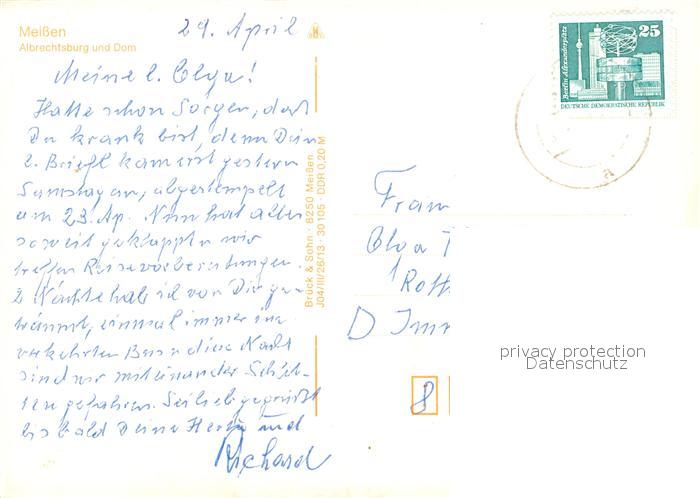 Meißen
Albrechtsburg und Dom
29. April
Meine l. Olga!
Hatte schon Sorgen, daß
Du krank bist, denn Dein
l. Briefl kam erst gestern
Samstag an, abgestempelt
am 23. Ap. Nun hat alles
soweit geklappt, wir
treffen Reisevorbereitungen.
2 Nächte hab ich von Dir ge-
träumt, einmal immer im
verkehrten Bus u. diese Nacht
sind wir miteinander Schlit-
ten gefahren. Sei lieb gegrüßt
bis bald Deine Herta und
Richard
Brück & Sohn · 8250 Meißen
J04/III/26/13 · 30 105 DDR 0,20 M
Berlin Alexanderplatz
25
DEUTSCHE DEMOKRATISCHE REPUBLIK
a
Frau
Olga
Roth
D Imm
8
privacy protection
Datenschutz